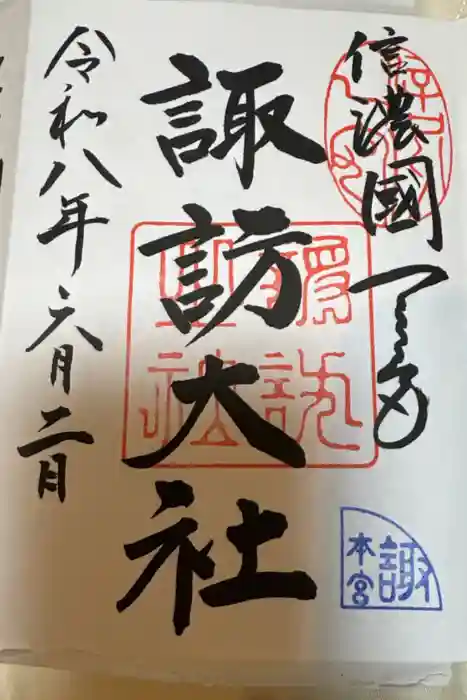 信濃國一之宮
諏訪大社
令和八年六月二日
諏
本宮